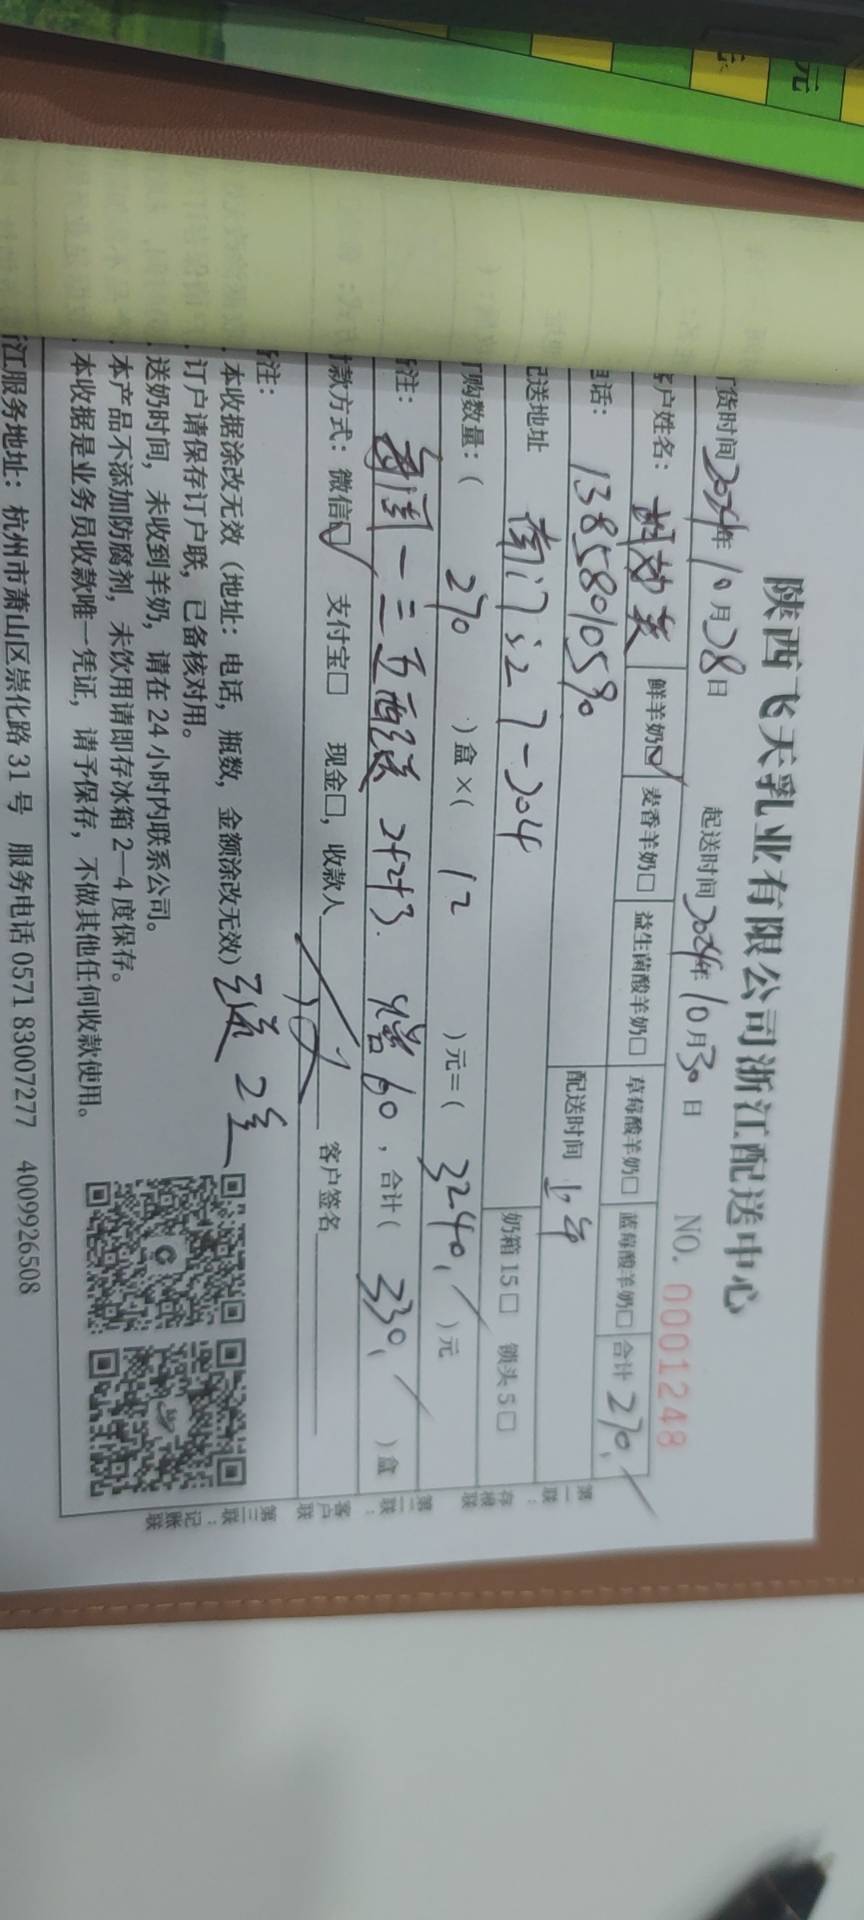 元
陕西飞天乳业有限公司浙江配送中心
订货时间2024年10月28日 起送时间2024年10月30日 NO. 0001248
客户姓名： 鲜羊奶☑ 麦香羊奶□ 益生菌酸羊奶□ 草莓酸羊奶□ 蓝莓酸羊奶□ 合计 270
电话：13858010590 配送时间 上午
配送地址 南门 27-204 奶箱15□ 锁头5□
订购数量：（ 270 ）盒×（ 12 ）元=（ 3240 ）元
备注： 一三五配送 2+2+3. 增60，合计（ 330 ）盒
付款方式：微信☑ 支付宝□ 现金□，收款人 客户签名
备注：
本收据涂改无效（地址：电话，瓶数，金额涂改无效） 送2盒
订户请保存订户联，已备核对用。
送奶时间，未收到羊奶，请在24小时内联系公司。
本产品不添加防腐剂，未饮用请即存冰箱2—4度保存。
本收据是业务员收款唯一凭证，请予保存，不做其他任何收款使用。
浙江服务地址：杭州市萧山区崇化路31号 服务电话 0571 83007277 4009926508
第一联：存根联
第二联：客户联
第三联：记账联